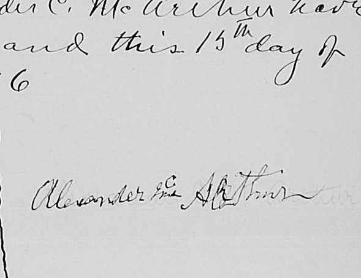 der C. McArthur have
and this 15th day of
6
Alexander Mc Arthur